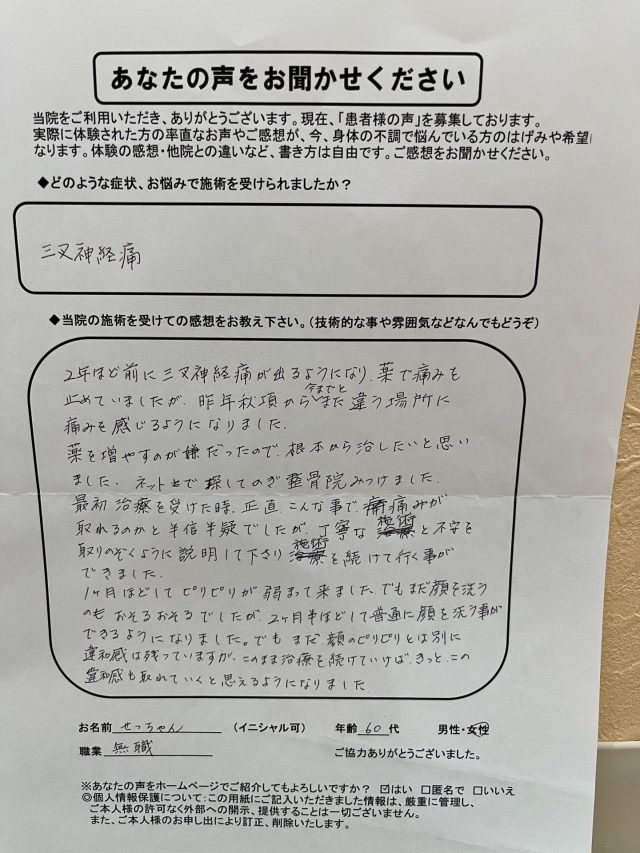 あなたの声をお聞かせください
当院をご利用いただき、ありがとうございます。現在、「患者様の声」を募集しております。
実際に体験された方の率直なお声やご感想が、今、身体の不調で悩んでいる方のはげみや希望に
なります。体験の感想・他院との違いなど、書き方は自由です。ご感想をお聞かせください。
◆どのような症状、お悩みで施術を受けられましたか？
三叉神経痛
◆当院の施術を受けての感想をお教え下さい。（技術的な事や雰囲気などなんでもどうぞ）
2年ほど前に三叉神経痛が出るようになり、薬で痛みを
止めていましたが、昨年秋頃から今までとまた違う場所に
痛みを感じるようになりました。
薬を増やすのが嫌だったので、根本から治したいと思い
ました。ネット上で探してのぎ整骨院みつけました。
最初治療を受けた時、正直、こんな事で痛みが
取れるのかと半信半疑でしたが、丁寧な施術と不安を
取りのぞくように説明して下さり施術を続けて行く事が
できました。
1ヶ月ほどしてピリピリが弱まって来ました。でもまだ顔を洗う
のもおそるおそるでしたが、2ヶ月半ほどして普通に顔を洗う事が
できるようになりました。でもまだ顔のピリピリとは別に
違和感は残っていますが、このまま治療を続けていけば、きっと、この
違和感も取れていくと思えるようになりました。
お名前 せっちゃん （イニシャル可） 年齢 60 代 男性・女性
職業 無職 ご協力ありがとうございました。
※あなたの声をホームページでご紹介してもよろしいですか？ ☑はい □匿名で □いいえ
◎個人情報保護について：この用紙にご記入いただきました情報は、厳重に管理し、
ご本人様の許可なく外部への開示、提供することは一切ございません。
また、ご本人様のお申し出により訂正、削除いたします。